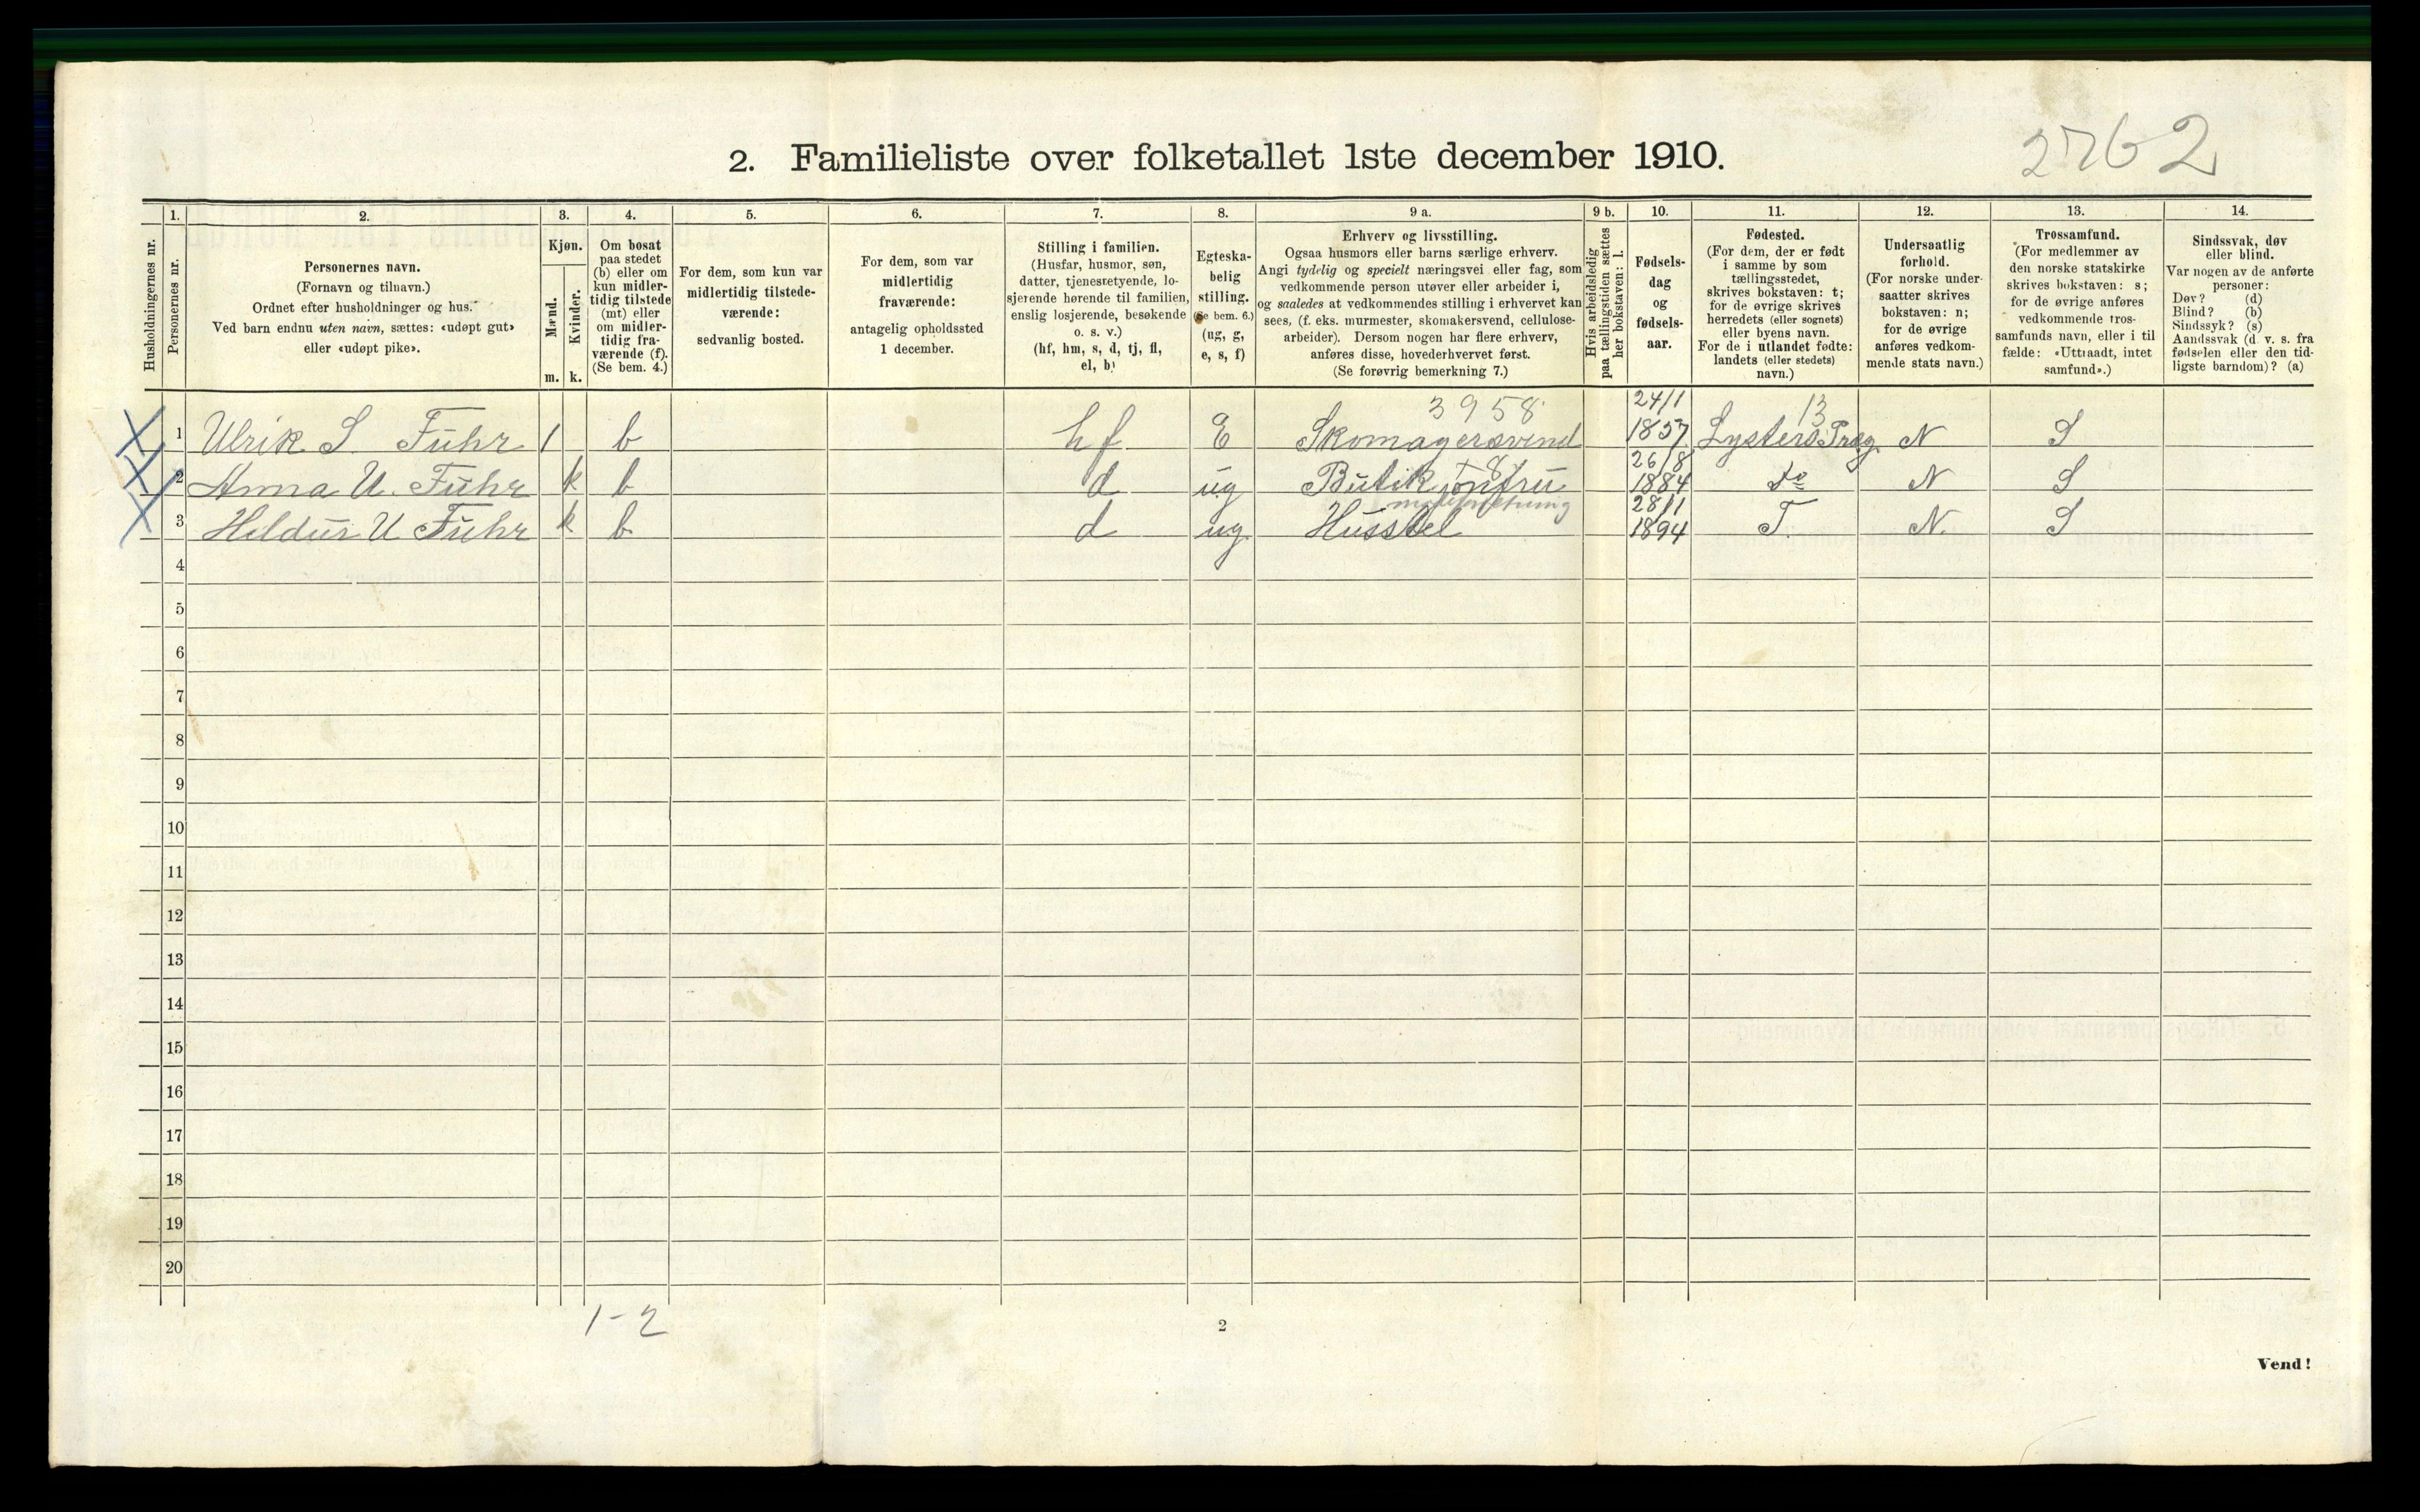 2762
2. Familieliste over folketallet 1ste december 1910.
1. 2. 3. 4. 5. 6. 7. 8. 9 a. 9 b. 10. 11. 12. 13. 14.
Husholdningernes nr.
Personernes nr.
Personernes navn.
(Fornavn og tilnavn.)
Ordnet efter husholdninger og hus.
Ved barn endnu uten navn, sættes: «udøpt gut»
eller «udøpt pike».
Kjøn.
Mænd.
Kvinder.
m. k.
Om bosat
paa stedet
(b) eller om
kun midler-
tidig tilstede
(mt) eller
om midler-
tidig fra-
værende (f).
(Se bem. 4.)
For dem, som kun var
midlertidig tilstede-
værende:
sedvanlig bosted.
For dem, som var
midlertidig
fraværende:
antagelig opholdssted
1 december.
Stilling i familien.
(Husfar, husmor, søn,
datter, tjenestetyende, lo-
sjerende hørende til familien,
enslig losjerende, besøkende
o. s. v.)
(hf, hm, s, d, tj, fl,
el, b)
Egteska-
belig
stilling.
(Se bem. 6.)
(ug, g,
e, s, f)
Erhverv og livsstilling.
Ogsaa husmors eller barns særlige erhverv.
Angi tydelig og specielt næringsvei eller fag, som
vedkommende person utøver eller arbeider i,
og saaledes at vedkommendes stilling i erhvervet kan
sees, (f. eks. murmester, skomakersvend, cellulose-
arbeider). Dersom nogen har flere erhverv,
anføres disse, hovederhvervet først.
(Se forøvrig bemerkning 7.)
Hvis arbeidsledig
paa tællingstiden sættes
her bokstaven: l.
Fødsels-
dag
og
fødsels-
aar.
Fødested.
(For dem, der er født
i samme by som
tællingsstedet,
skrives bokstaven: t;
for de øvrige skrives
herredets (eller sognets)
eller byens navn.
For de i utlandet fødte:
landets (eller stedets)
navn.)
Undersaatlig
forhold.
(For norske under-
saatter skrives
bokstaven: n;
for de øvrige
anføres vedkom-
mende stats navn.)
Trossamfund.
(For medlemmer av
den norske statskirke
skrives bokstaven: s;
for de øvrige anføres
vedkommende tros-
samfunds navn, eller i til
fælde: «Uttraadt, intet
samfund».)
Sindssvak, døv
eller blind.
Var nogen av de anførte
personer:
Døv? (d)
Blind? (b)
Sindssyk? (s)
Aandssvak (d. v. s. fra
fødselen eller den tid-
ligste barndom)? (a)
3958 24/1 13
1 Ulrik S. Fuhr 1 b hf E Skomagersvend 1857 Lysters Præg. N S
26/8
2 Anna U. Fuhr k b d ug Butik jomfru 1884 Do N S
28/1
3 Heldur U Fuhr k b d ug Husstel 1894 T. N. S
4
5
6
7
8
9
10
11
12
13
14
15
16
17
18
19
20
1-2
2
Vend!